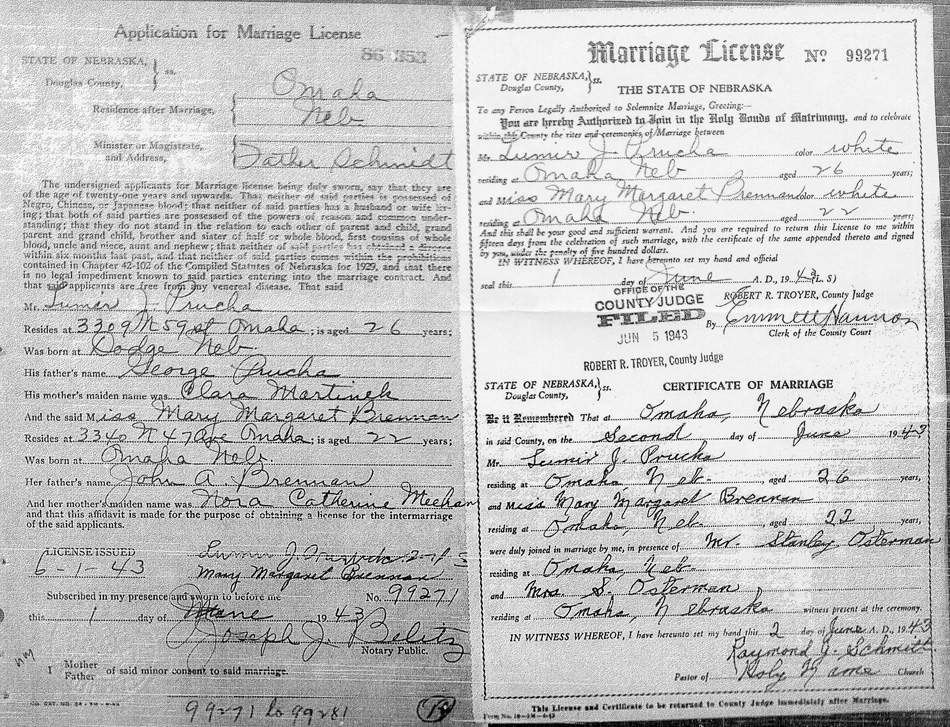 Application for Marriage License
86 352
STATE OF NEBRASKA,
Douglas County, } ss.
Omaha
Residence after Marriage,
Neb.
Minister or Magistrate,
and Address,
Father Schmidt
The undersigned applicants for Marriage license being duly sworn, say that they are
of the age of twenty-one years and upwards. That neither of said parties is possessed of
Negro, Chinese, or Japanese blood; that neither of said parties has a husband or wife liv-
ing; that both of said parties are possessed of the powers of reason and common under-
standing; that they do not stand in the relation to each other of parent and child, grand
parent and grand child, brother and sister of half or whole blood, first cousins of whole
blood, uncle and niece, aunt and nephew; that neither of said parties has obtained a divorce
within six months last past, and that neither of said parties comes within the prohibitions
contained in Chapter 42-102 of the Compiled Statutes of Nebraska for 1929, and that there
is no legal impediment known to said parties entering into the marriage contract. And
that said applicants are free from any venereal disease. That said
Mr. Lumir J. Prucha
Resides at 3309 N 59 st Omaha; is aged 26 years;
Was born at Dodge Neb
His father's name George Prucha
His mother's maiden name was Clara Martinek
And the said Miss Mary Margaret Brennan
Resides at 3340 N 47 Ave Omaha; is aged 22 years;
Was born at Omaha Neb.
Her father's name John A Brennan
And her mother's maiden name was Nora Catherine Meehan
and that this affidavit is made for the purpose of obtaining a license for the intermarriage
of the said applicants.
LICENSE ISSUED
6-1-43
Lumir J.
Mary Margaret Brennan
Subscribed in my presence and sworn to before me No. 99271
this 1 day of June 1943
Joseph J. Belitz
Notary Public.
I Mother
Father of said minor consent to said marriage.
99271 to 99281
19
Marriage License No 99271
STATE OF NEBRASKA,
Douglas County, } ss.
THE STATE OF NEBRASKA
To any Person Legally Authorized to Solemnize Marriage, Greeting:—
You are hereby Authorized to Join in the Holy Bonds of Matrimony, and to celebrate
within this County the rites and ceremonies of Marriage between
Mr. Lumir J Prucha color white
residing at Omaha Neb aged 26 years;
and Miss Mary Margaret Brennan color white
residing at Omaha Neb. aged 22 years;
And this shall be your good and sufficient warrant. And you are required to return this License to me within
fifteen days from the celebration of such marriage, with the certificate of the same appended thereto and signed
by you, under the penalty of five hundred dollars.
IN WITNESS WHEREOF, I have hereunto set my hand and official
seal this 1 day of June A. D., 1943 (L. S)
OFFICE OF THE
COUNTY JUDGE
FILED
JUN 5 1943
ROBERT R. TROYER, County Judge
By Emmett Hannon
Clerk of the County Court
ROBERT R. TROYER, County Judge
STATE OF NEBRASKA,
Douglas County, } ss.
CERTIFICATE OF MARRIAGE
Be it Remembered That at Omaha, Nebraska
in said County, on the Second day of June 1943
Mr. Lumir J. Prucha
residing at Omaha Neb. aged 26 years,
and Miss Mary Margaret Brennan
residing at Omaha, Neb. , aged 22 years,
were duly joined in marriage by me, in presence of Mr. Stanley Osterman
residing at Omaha, Neb.
and Mrs. S. Osterman
residing at Omaha Nebraska witness present at the ceremony.
IN WITNESS WHEREOF, I have hereunto set my hand this 2 day of June A. D., 1943
Raymond J. Schmitt
Pastor of Holy Name Church
This License and Certificate to be returned to County Judge immediately after Marriage.